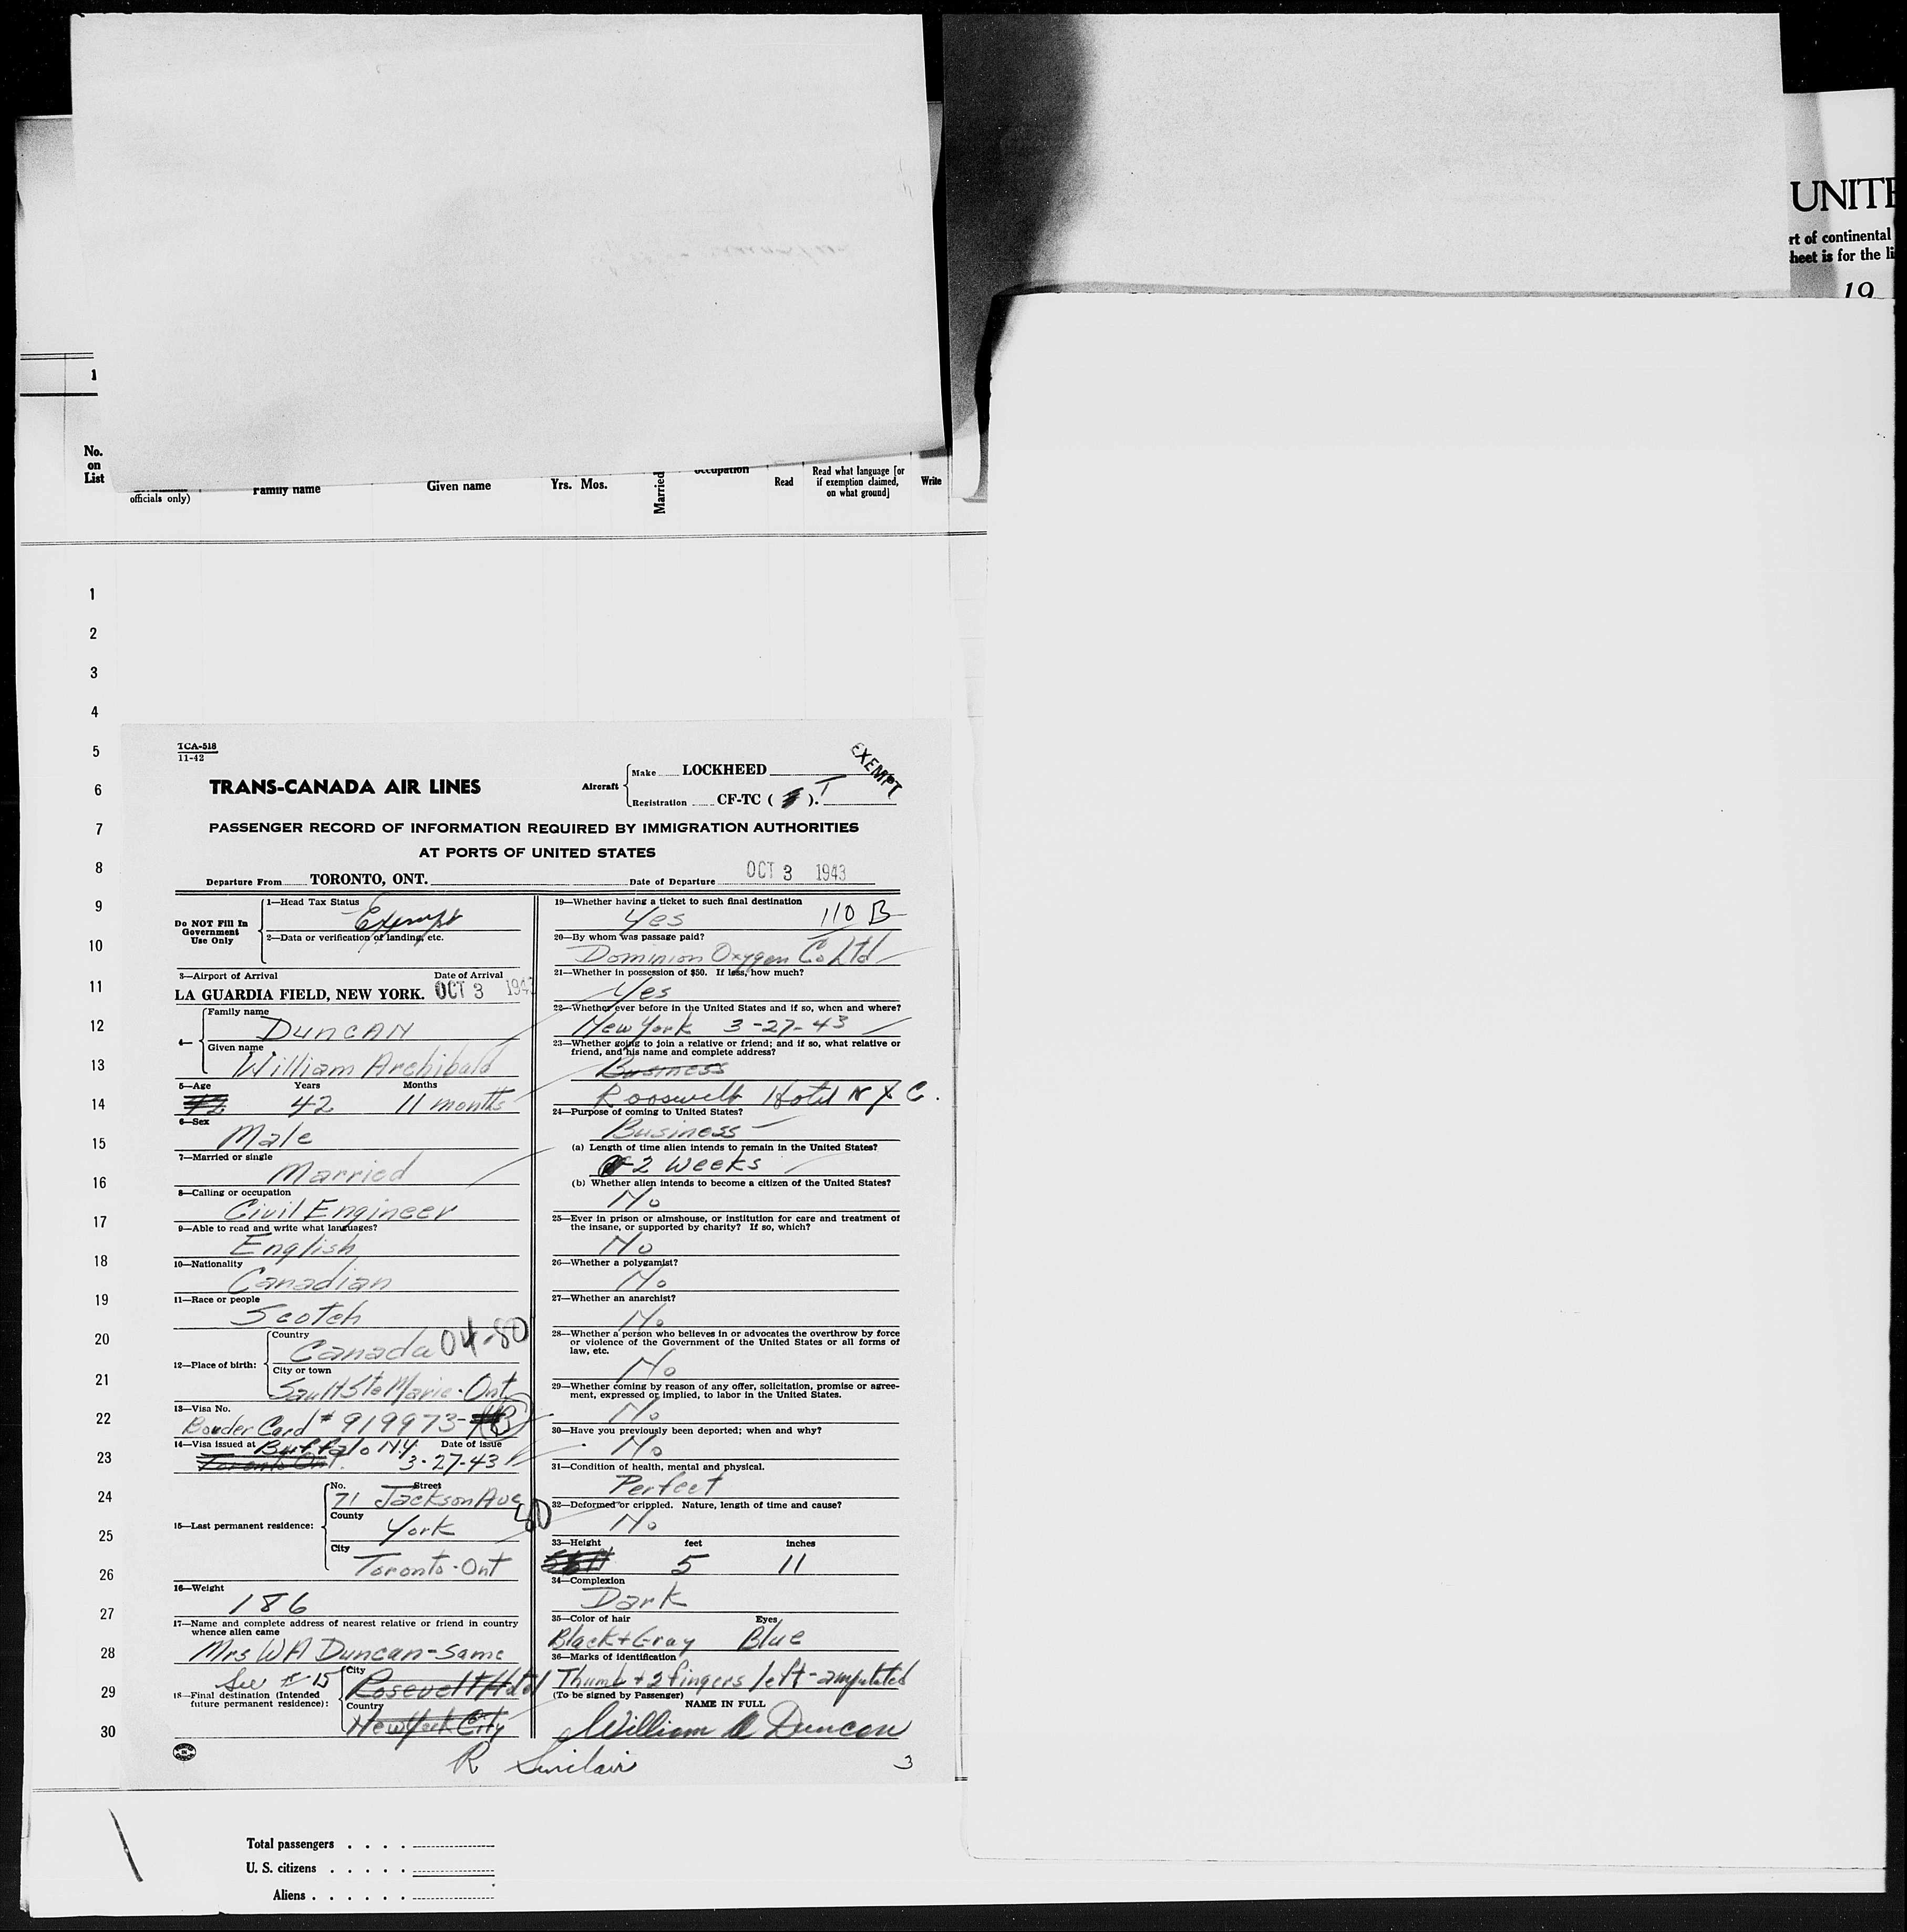 UNITE
rt of continental
heet is for the li
19
1
No.
on
List
officials only)
Family name
Given name
Yrs. Mos.
Married
Occupation
Read
Read what language [or
if exemption claimed,
on what ground]
Write
1
2
3
4
5
6
7
8
9
10
11
12
13
14
15
16
17
18
19
20
21
22
23
24
25
26
27
28
29
30
TCA-518
11-42
TRANS-CANADA AIR LINES
Aircraft
Make LOCKHEED
Registration CF-TC ( ). T
EXEMPT
PASSENGER RECORD OF INFORMATION REQUIRED BY IMMIGRATION AUTHORITIES
AT PORTS OF UNITED STATES
Departure From TORONTO, ONT. Date of Departure OCT 3 1943
Do NOT Fill In
Government
Use Only
1—Head Tax Status
Exempt
2—Data or verification of landing, etc.
3—Airport of Arrival Date of Arrival
LA GUARDIA FIELD, NEW YORK. OCT 3 1943
4—
Family name
DUNCAN
Given name
William Archibald
5—Age Years Months
42 42 11 months
6—Sex
Male
7—Married or single
Married
8—Calling or occupation
Civil Engineer
9—Able to read and write what languages?
English
10—Nationality
Canadian
11—Race or people
Scotch
12—Place of birth:
Country
Canada 04-80
City or town
Sault Ste Marie - Ont
13—Visa No.
Bouder Card # 919973-
14—Visa issued at Buffalo N.Y. Date of issue
Toronto Ont. 3-27-43
15—Last permanent residence:
No. Street
71 Jackson Ave
County
York
80
City
Toronto - Ont
16—Weight
186
17—Name and complete address of nearest relative or friend in country
whence alien came
Mrs W A Duncan - Same
See # 15
18—Final destination (Intended
future permanent residence):
City
Rosevelt Hotel
Country
New York City
19—Whether having a ticket to such final destination
Yes 110 B
20—By whom was passage paid?
Dominion Oxygen Co Ltd
21—Whether in possession of $50. If less, how much?
Yes
22—Whether ever before in the United States and if so, when and where?
New York 3-27-43
23—Whether going to join a relative or friend; and if so, what relative or
friend, and his name and complete address?
Business
Rooswelt Hotel N Y C.
24—Purpose of coming to United States?
Business
(a) Length of time alien intends to remain in the United States?
2 Weeks
(b) Whether alien intends to become a citizen of the United States?
No
25—Ever in prison or almshouse, or institution for care and treatment of
the insane, or supported by charity? If so, which?
No
26—Whether a polygamist?
No
27—Whether an anarchist?
No
28—Whether a person who believes in or advocates the overthrow by force
or violence of the Government of the United States or all forms of
law, etc.
No
29—Whether coming by reason of any offer, solicitation, promise or agree-
ment, expressed or implied, to labor in the United States.
No
30—Have you previously been deported; when and why?
No
31—Condition of health, mental and physical.
Perfect
32—Deformed or crippled. Nature, length of time and cause?
No
33—Height feet inches
5 11
34—Complexion
Dark
35—Color of hair Eyes
Black + Gray Blue
36—Marks of identification
Thumb + 2 fingers left - amputated
(To be signed by Passenger)
NAME IN FULL
William A Duncan
R Sinclair
3
Total passengers . . . .
U. S. citizens . . . . .
Aliens . . . . . .